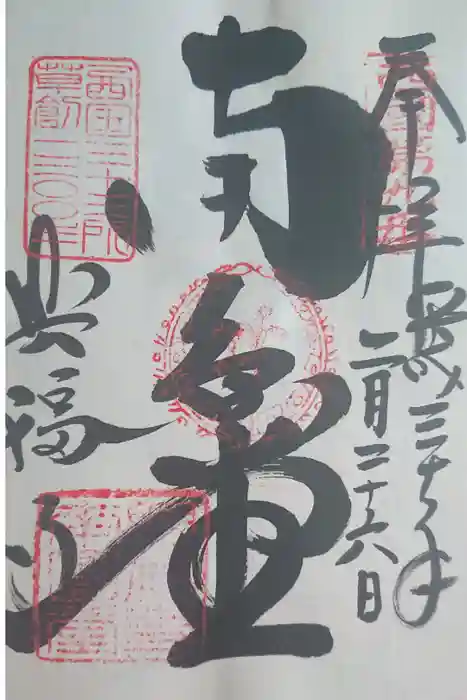 奉拝
平成三十年
二月二十六日
西国第九番
南圓堂
西国三十三所
草創一三〇〇年
興福寺